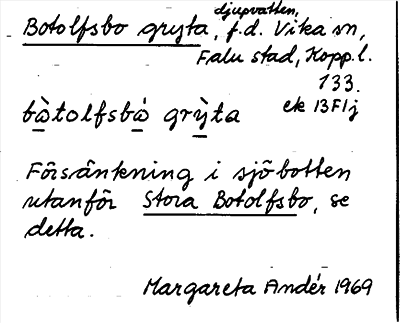 djupvatten,
Botolfsbo gryta, f.d. Vika sn,
Falu stad, Kopp.l.
133.
ek 13F1j
bòtolfsbó grỳta
Försänkning i sjöbotten
utanför Stora Botolfsbo, se
detta.
Margareta Andér 1969